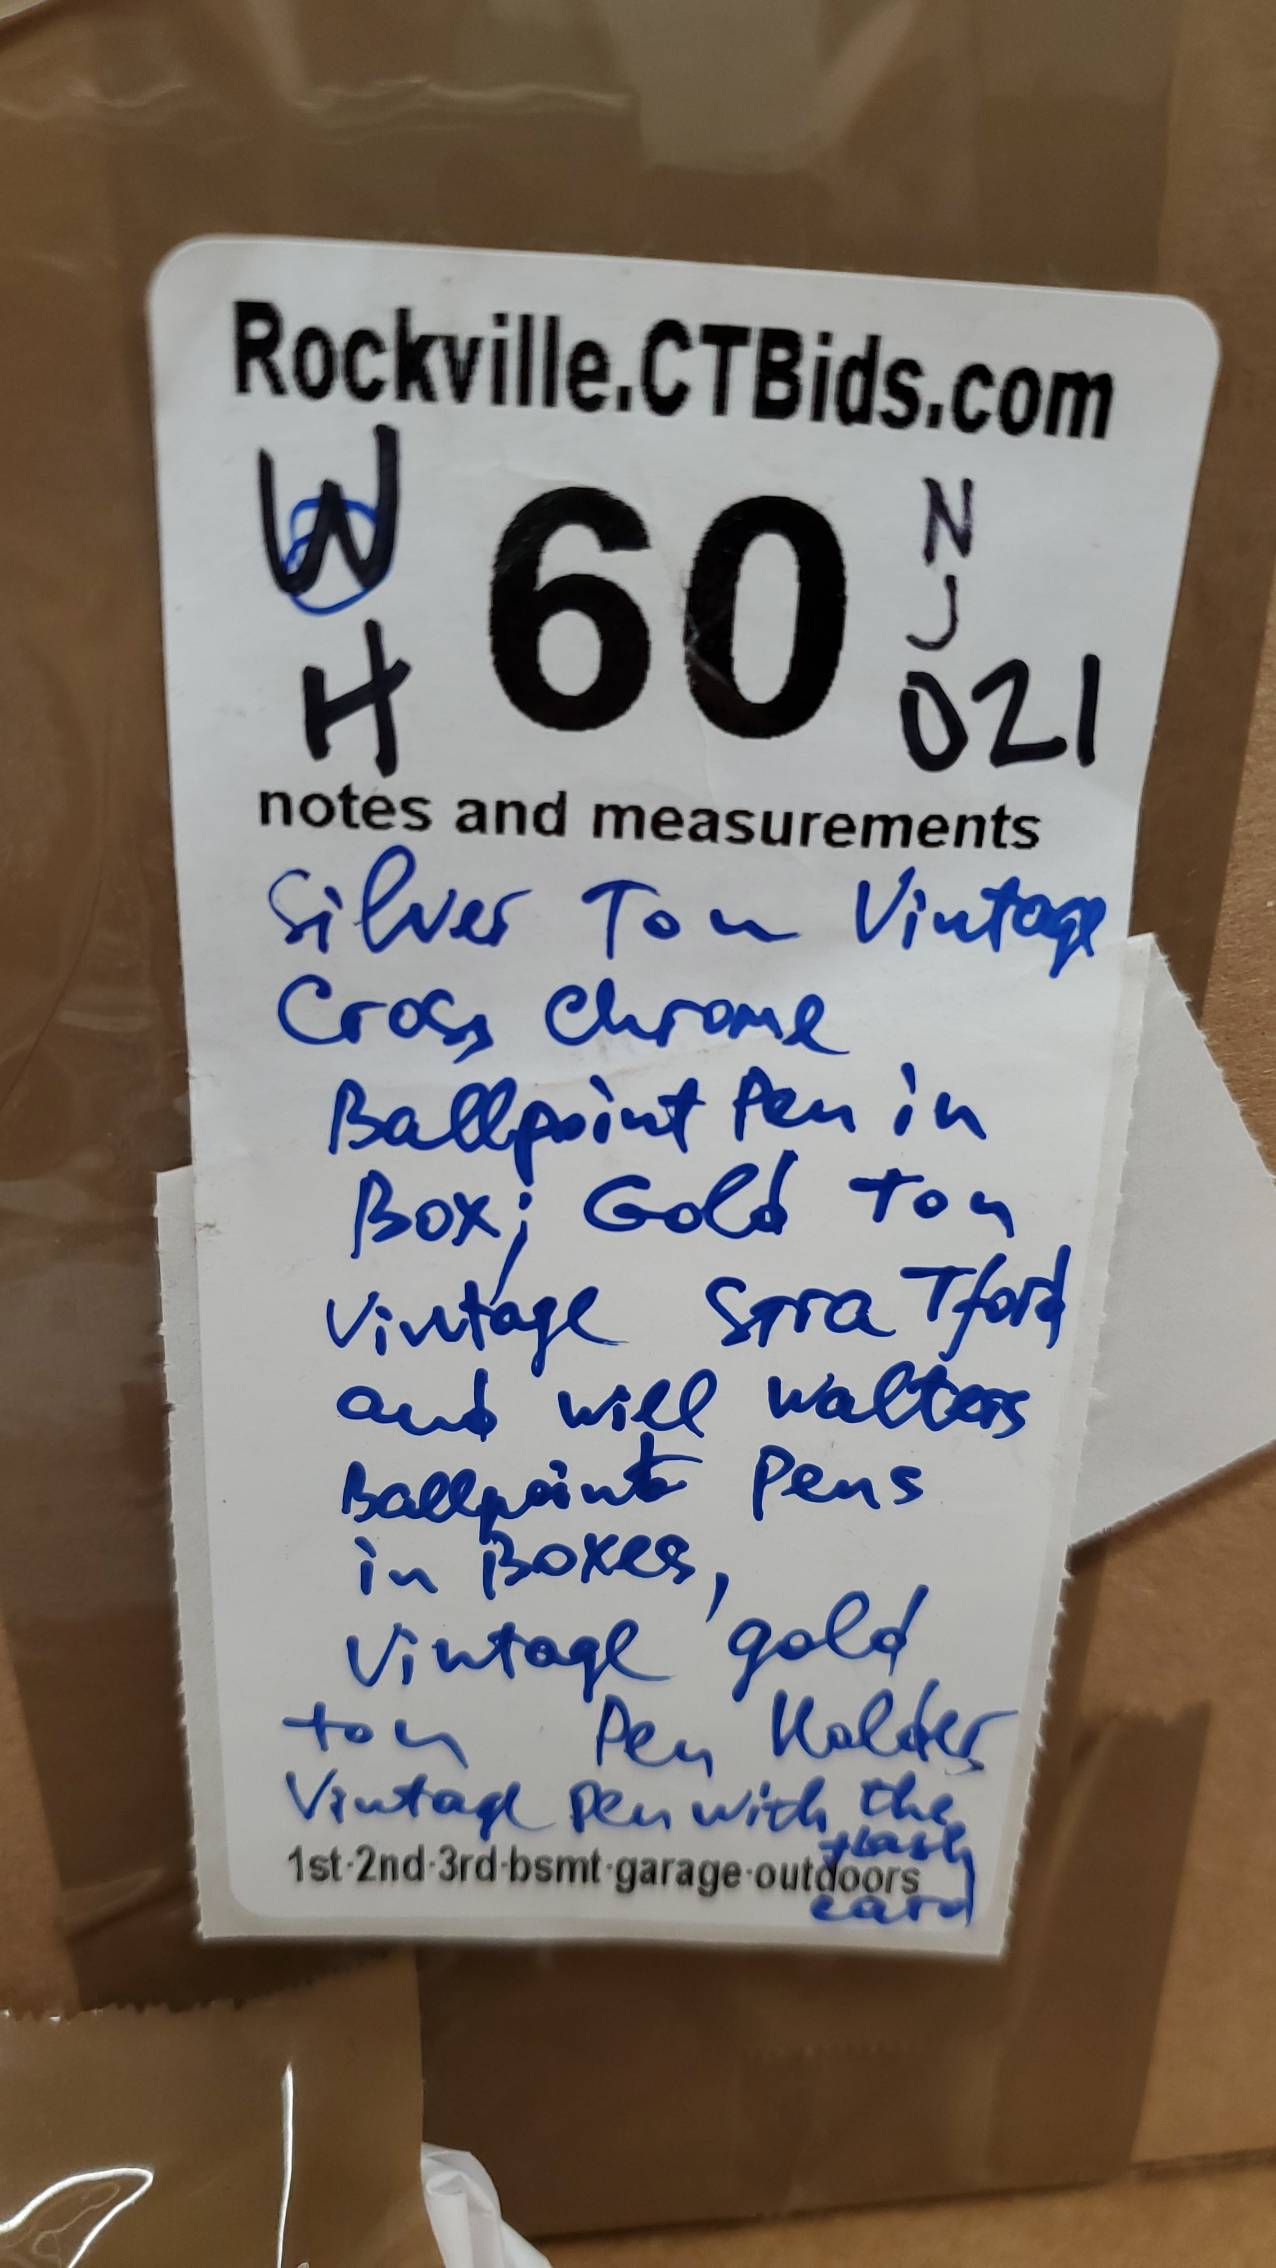 Rockville.CTBids.com
W
H
60
N
J
021
notes and measurements
Silver Ton Vintage
Cross Chrome
Ballpoint Pen in
Box; Gold ton
Vintage Stratford
and will walters
Ballpoint Pens
in Boxes,
Vintage gold
ton Pen Holder
Vintage Pen with the
flash
1st·2nd·3rd·bsmt·garage·outdoors
card